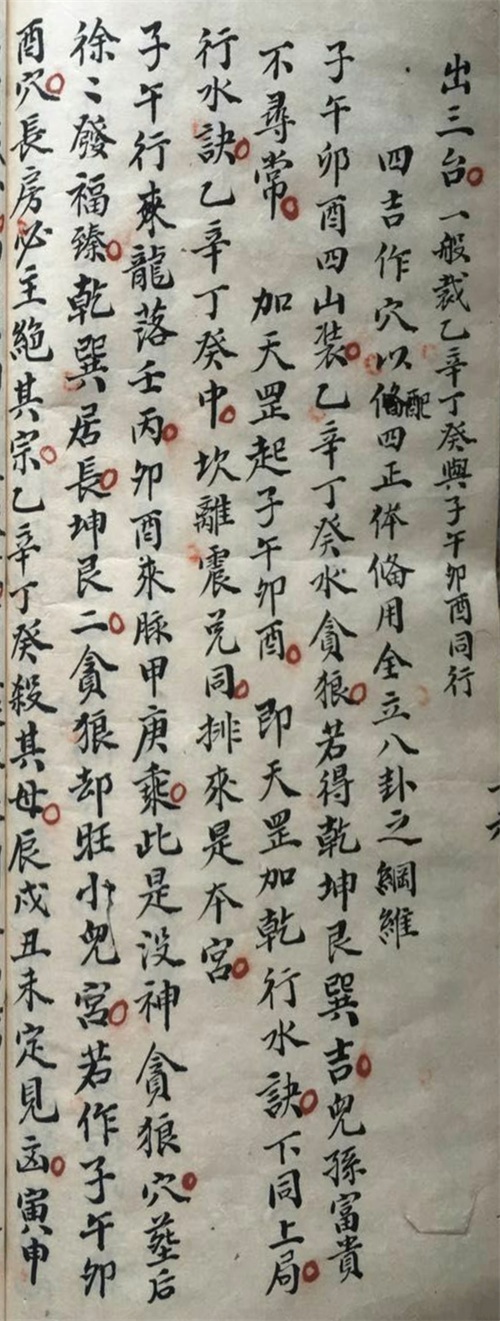 出三台。一般裁乙辛丁癸與子午卯酉同行
四吉作穴以配四正体俻用全立八卦之綱維
子午卯酉四山装。乙辛丁癸水貪狼。若得乾坤艮巽吉。兒孫富貴
不尋常。 加天罡起子午卯酉。 即天罡加乾行水訣。下同上局。
行水訣。乙辛丁癸中。坎離震兌同。排來是本宮。
子午行來龍落壬丙。卯酉來脉甲庚乘。此是没神貪狼穴。塟后
徐〻發福臻。乾巽居長。坤艮二。貪狼却旺小兒宮。若作子午卯
酉穴。長房必主絕其宗。乙辛丁癸殺其母。辰戍丑未定見凶。寅申